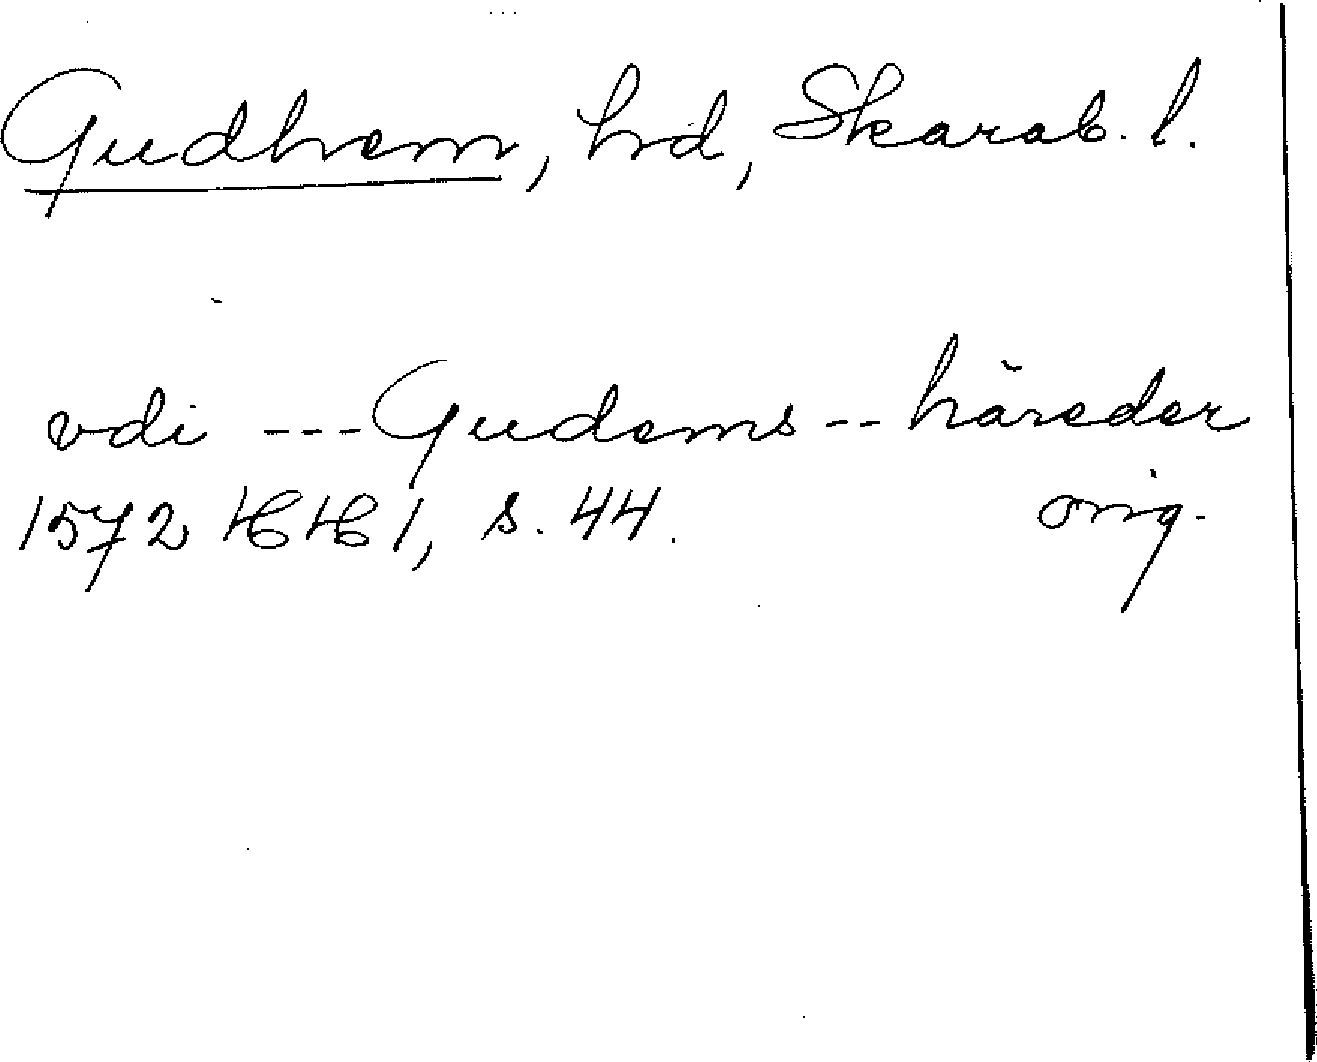 Gudhem, hd, Skarab. l.
vdi --- Gudems -- häreder
1572 HH 1, s. 44. orig.